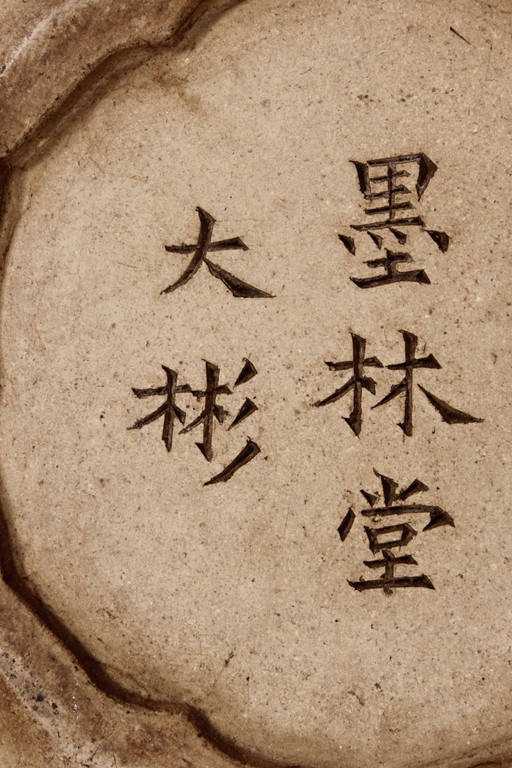 墨林堂
大彬